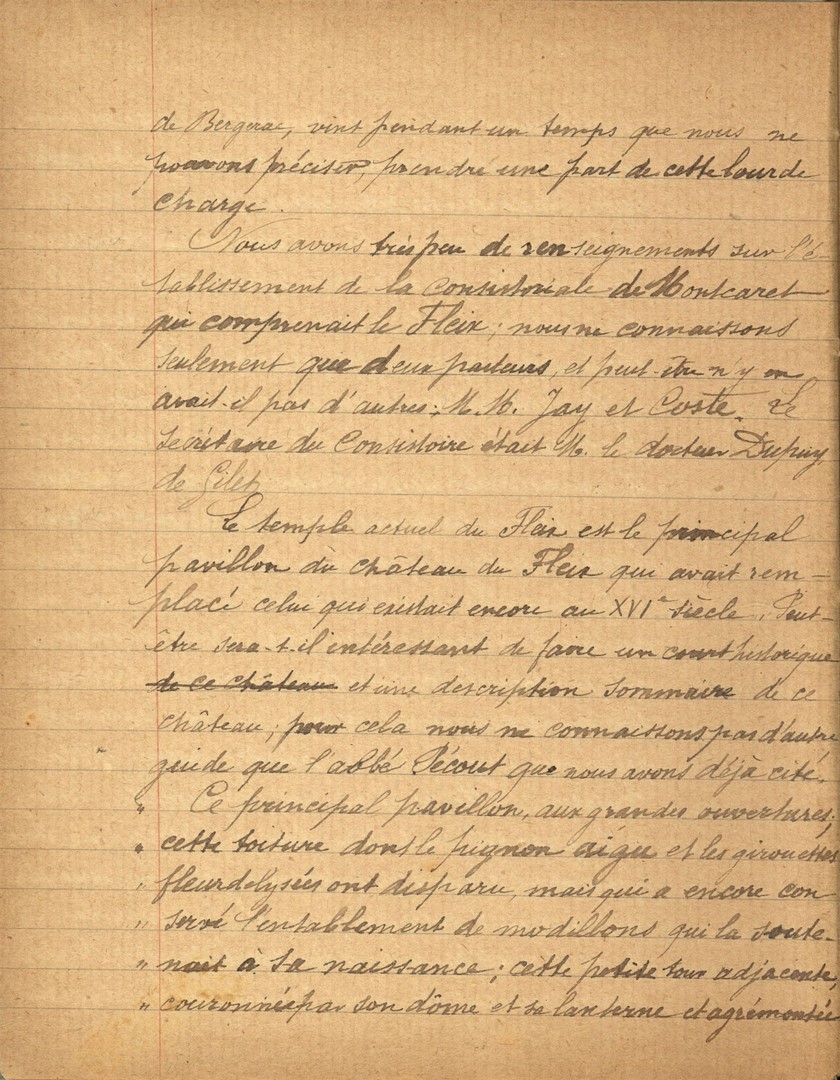 de Bergerac, vint pendant un temps que nous ne
pouvons préciser, prendre une part de cette lourde
charge.
Nous avons très peu de renseignements sur l'é-
tablissement de la Consistoriale de Montcaret
qui comprenait le Fleix ; nous ne connaissons
seulement que deux pasteurs, et peut-être n'y en
avait-il pas d'autres : M.M. Jay et Coste. Le
secrétaire du Consistoire était M. le docteur Dupuy
de Gilet.
Le temple actuel du Fleix est le principal
pavillon du château du Fleix qui avait rem-
placé celui qui existait encore au XVIe siècle. Peut-
être sera-t-il intéressant de faire un court historique
de ce château et une description sommaire de ce
château ; pour cela nous ne connaissons pas d'autre
guide que l'abbé Pécout que nous avons déjà cité.
" Ce principal pavillon, aux grandes ouvertures,
" cette toiture dont le pignon aigu et les girouettes
" fleurdelysées ont disparu, mais qui a encore con-
" servé l'entablement de modillons qui la soute-
" nait à sa naissance ; cette petite tour adjacente,
" couronnée par son dôme et sa lanterne et agrémentée